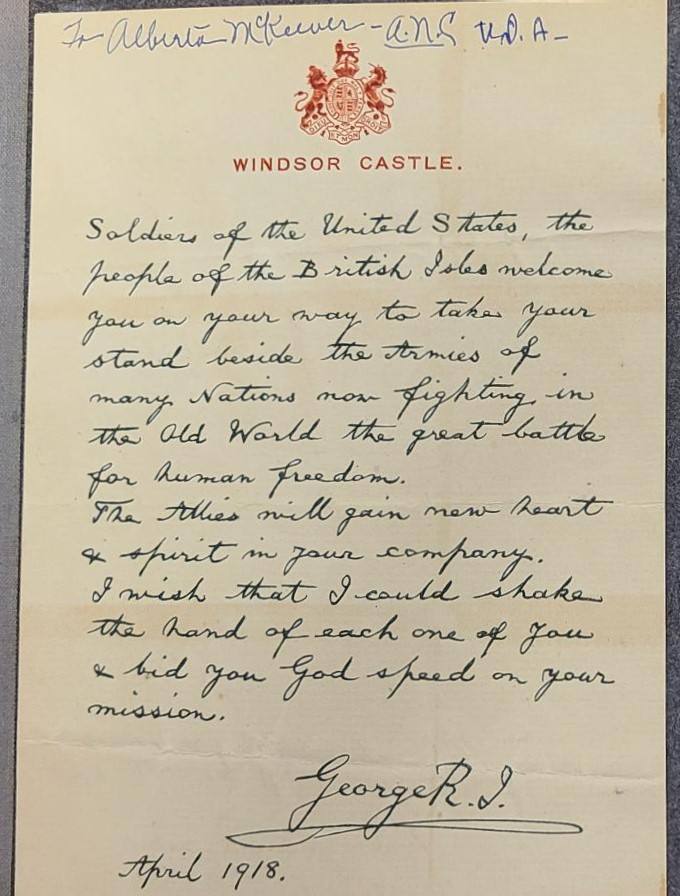 To Alberta McKeever - A.N.C U.S.A -
WINDSOR CASTLE.
Soldiers of the United States, the
people of the British Isles welcome
you on your way to take your
stand beside the Armies of
many Nations now fighting in
the Old World the great battle
for human freedom.
The Allies will gain new heart
& spirit in your company.
I wish that I could shake
the hand of each one of you
& bid you God speed on your
mission.
George R.I.
April 1918.